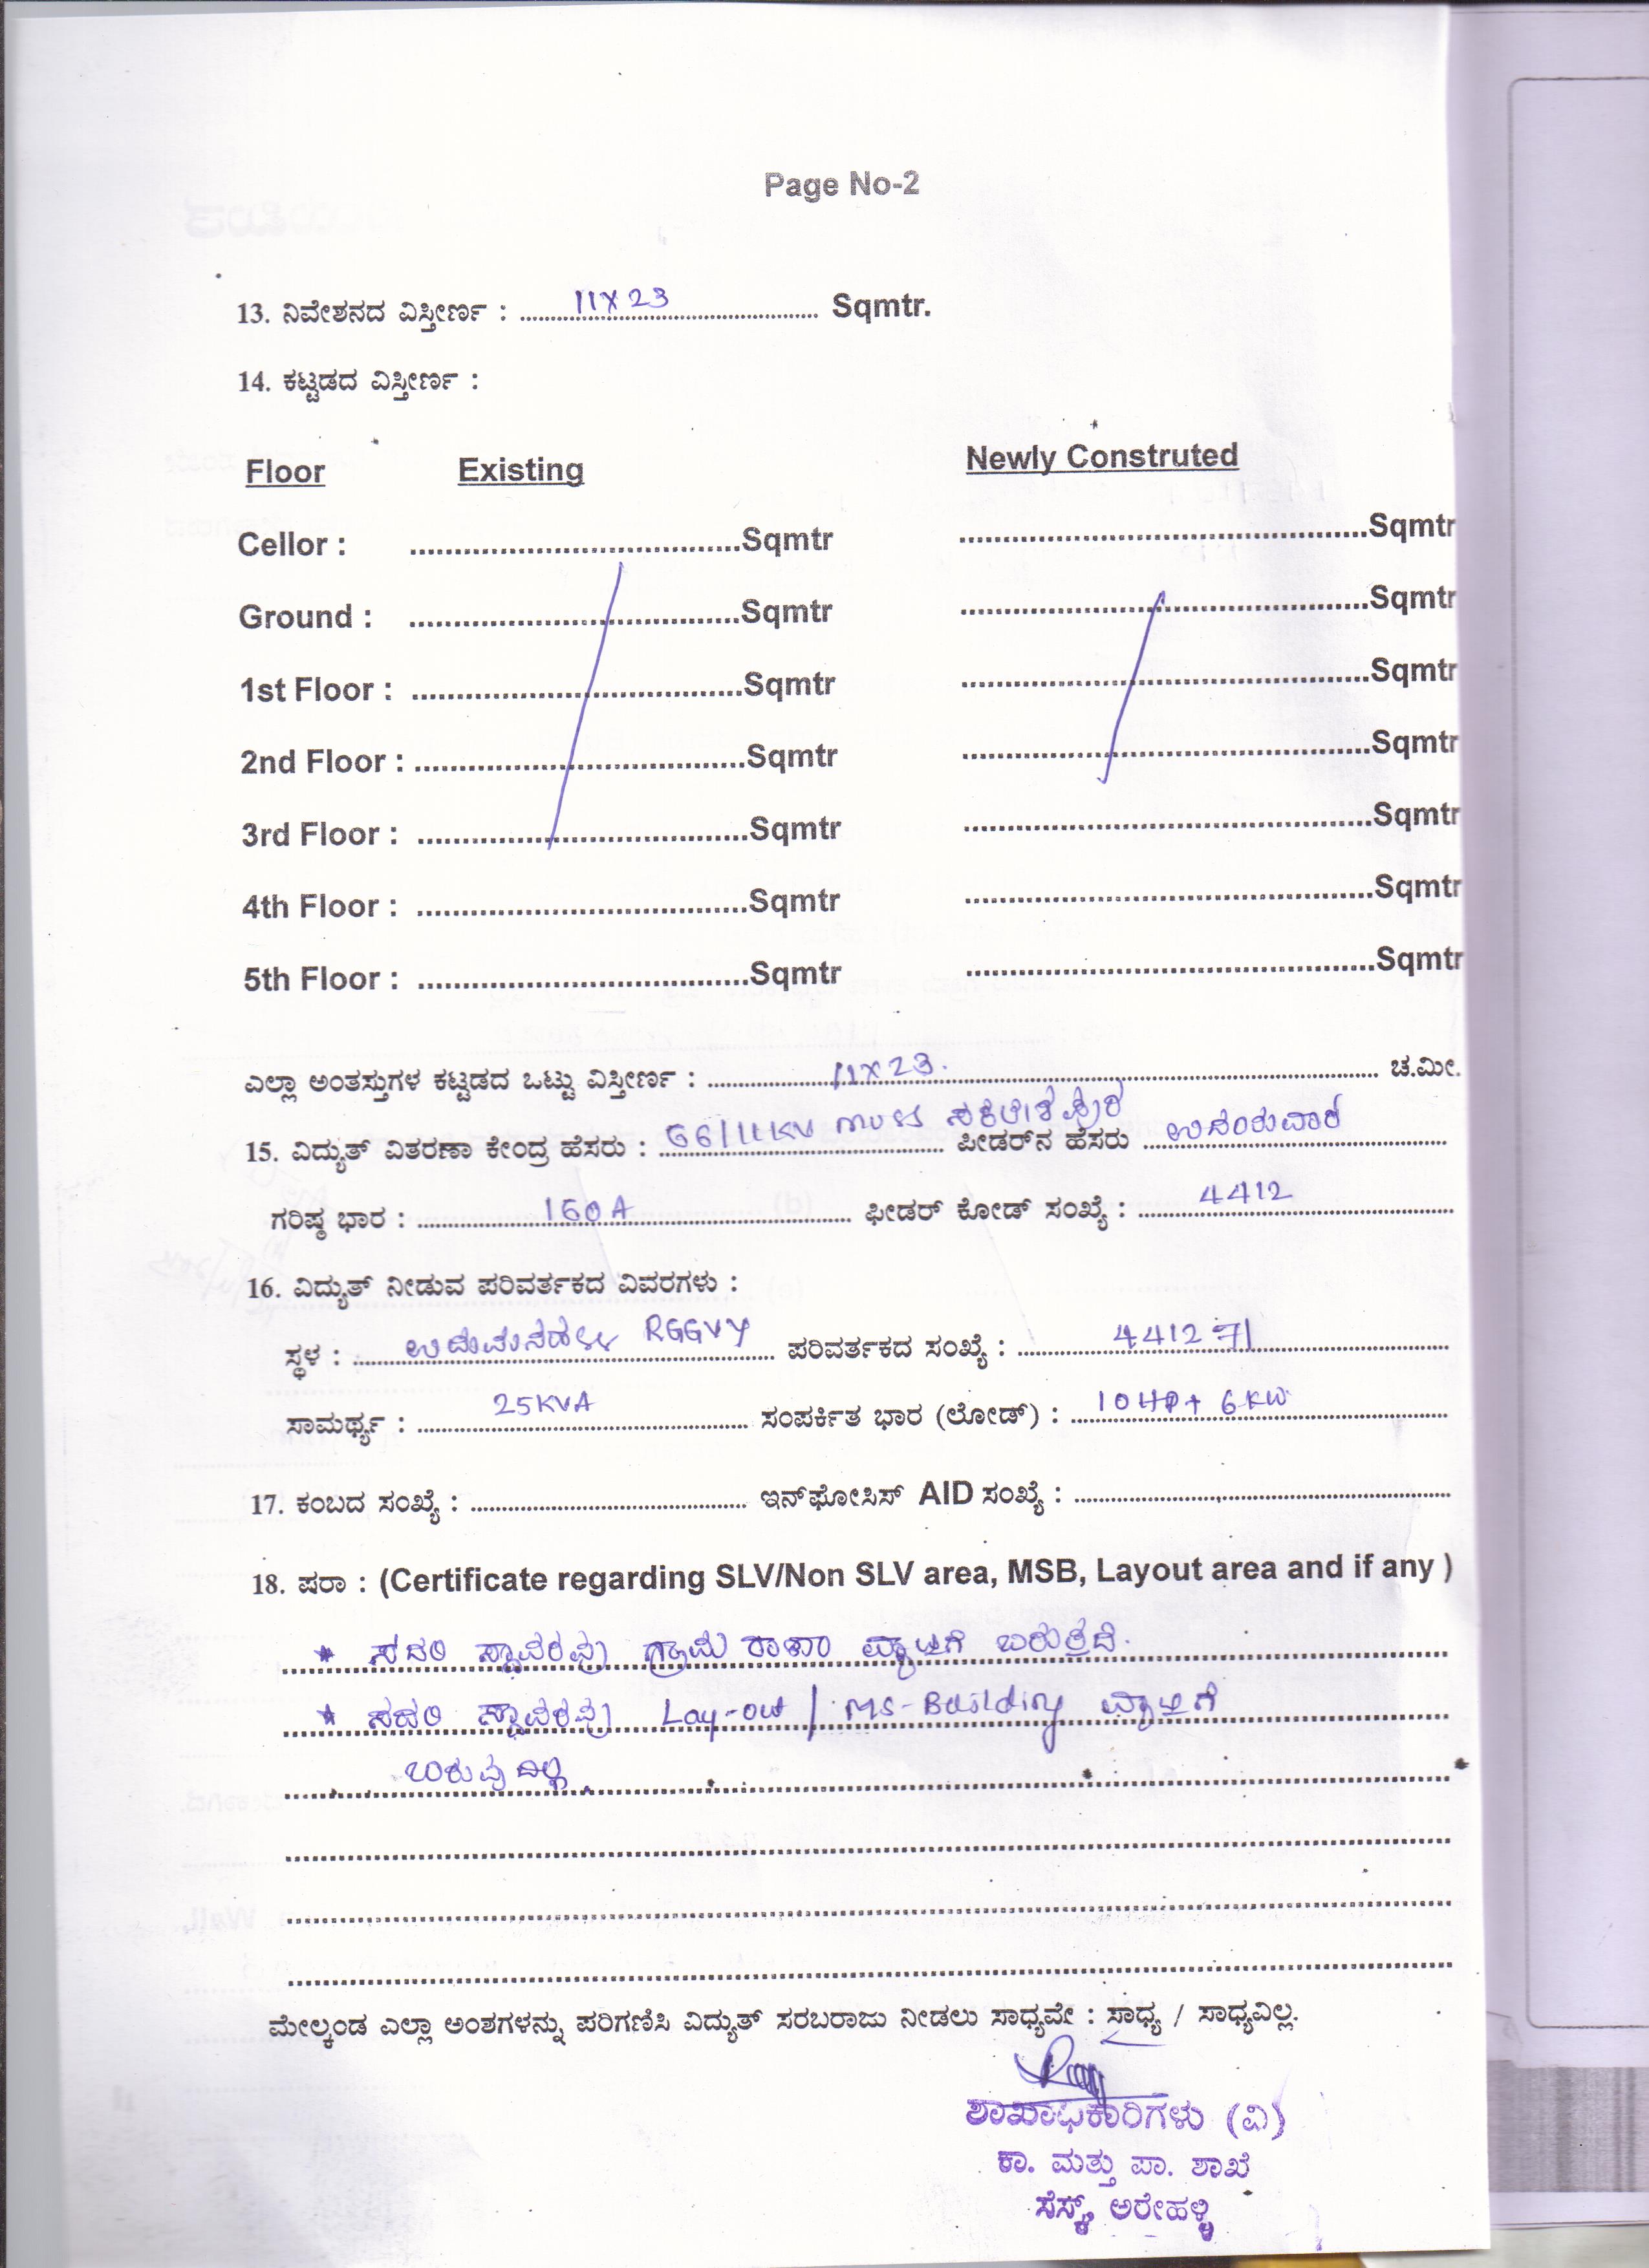 Page No-2
13. ನಿವೇಶನದ ವಿಸ್ತೀರ್ಣ : 11X23 Sqmtr.
14. ಕಟ್ಟಡದ ವಿಸ್ತೀರ್ಣ :
Floor Existing Newly Construted
Cellor : Sqmtr Sqmtr
Ground : Sqmtr Sqmtr
1st Floor : Sqmtr Sqmtr
2nd Floor : Sqmtr Sqmtr
3rd Floor : Sqmtr Sqmtr
4th Floor : Sqmtr Sqmtr
5th Floor : Sqmtr Sqmtr
ಎಲ್ಲಾ ಅಂತಸ್ತುಗಳ ಕಟ್ಟಡದ ಒಟ್ಟು ವಿಸ್ತೀರ್ಣ : 11X23. ಚ.ಮೀ.
15. ವಿದ್ಯುತ್ ವಿತರಣಾ ಕೇಂದ್ರ ಹೆಸರು : 66/11KV ಸಕಲೇಶಪುರ ಪೀಡರ್‌ನ ಹೆಸರು
ಗರಿಷ್ಠ ಭಾರ : 160A ಫೀಡರ್ ಕೋಡ್ ಸಂಖ್ಯೆ : 4412
16. ವಿದ್ಯುತ್ ನೀಡುವ ಪರಿವರ್ತಕದ ವಿವರಗಳು :
ಸ್ಥಳ : RGGVY ಪರಿವರ್ತಕದ ಸಂಖ್ಯೆ : 441271
ಸಾಮರ್ಥ್ಯ : 25KVA ಸಂಪರ್ಕಿತ ಭಾರ (ಲೋಡ್) : 10HP+ 6KW
17. ಕಂಬದ ಸಂಖ್ಯೆ : ಇನ್‌ಫೋಸಿಸ್ AID ಸಂಖ್ಯೆ :
18. ಷರಾ : (Certificate regarding SLV/Non SLV area, MSB, Layout area and if any )
* ಸದರಿ ಸ್ಥಾವರವು ಗ್ರಾಮ ಠಾಣಾ ವ್ಯಾಪ್ತಿಗೆ ಬರುತ್ತದೆ.
* ಸದರಿ ಸ್ಥಾವರವು Lay-out / Ms-Building ವ್ಯಾಪ್ತಿಗೆ
ಬರುವುದಿಲ್ಲ.
ಮೇಲ್ಕಂಡ ಎಲ್ಲಾ ಅಂಶಗಳನ್ನು ಪರಿಗಣಿಸಿ ವಿದ್ಯುತ್ ಸರಬರಾಜು ನೀಡಲು ಸಾಧ್ಯವೇ : ಸಾಧ್ಯ / ಸಾಧ್ಯವಿಲ್ಲ.
ಶಾಖಾಧಿಕಾರಿಗಳು (ವಿ)
ಕಾ. ಮತ್ತು ಪಾ. ಶಾಖೆ
ಸೆಸ್ಕ್, ಅರೇಹಳ್ಳಿ